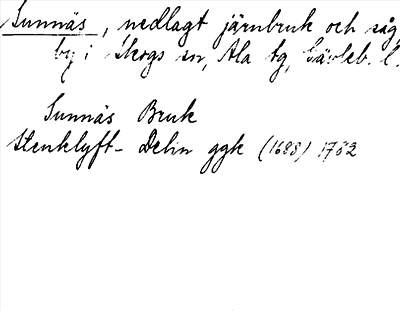 Sunnäs, nedlagt järnbruk och såg,
by i Skogs sn, Ala tg, Gävleb. l.
Sunnäs Bruk
Stenklyft- Delin ggk (1688) 1782